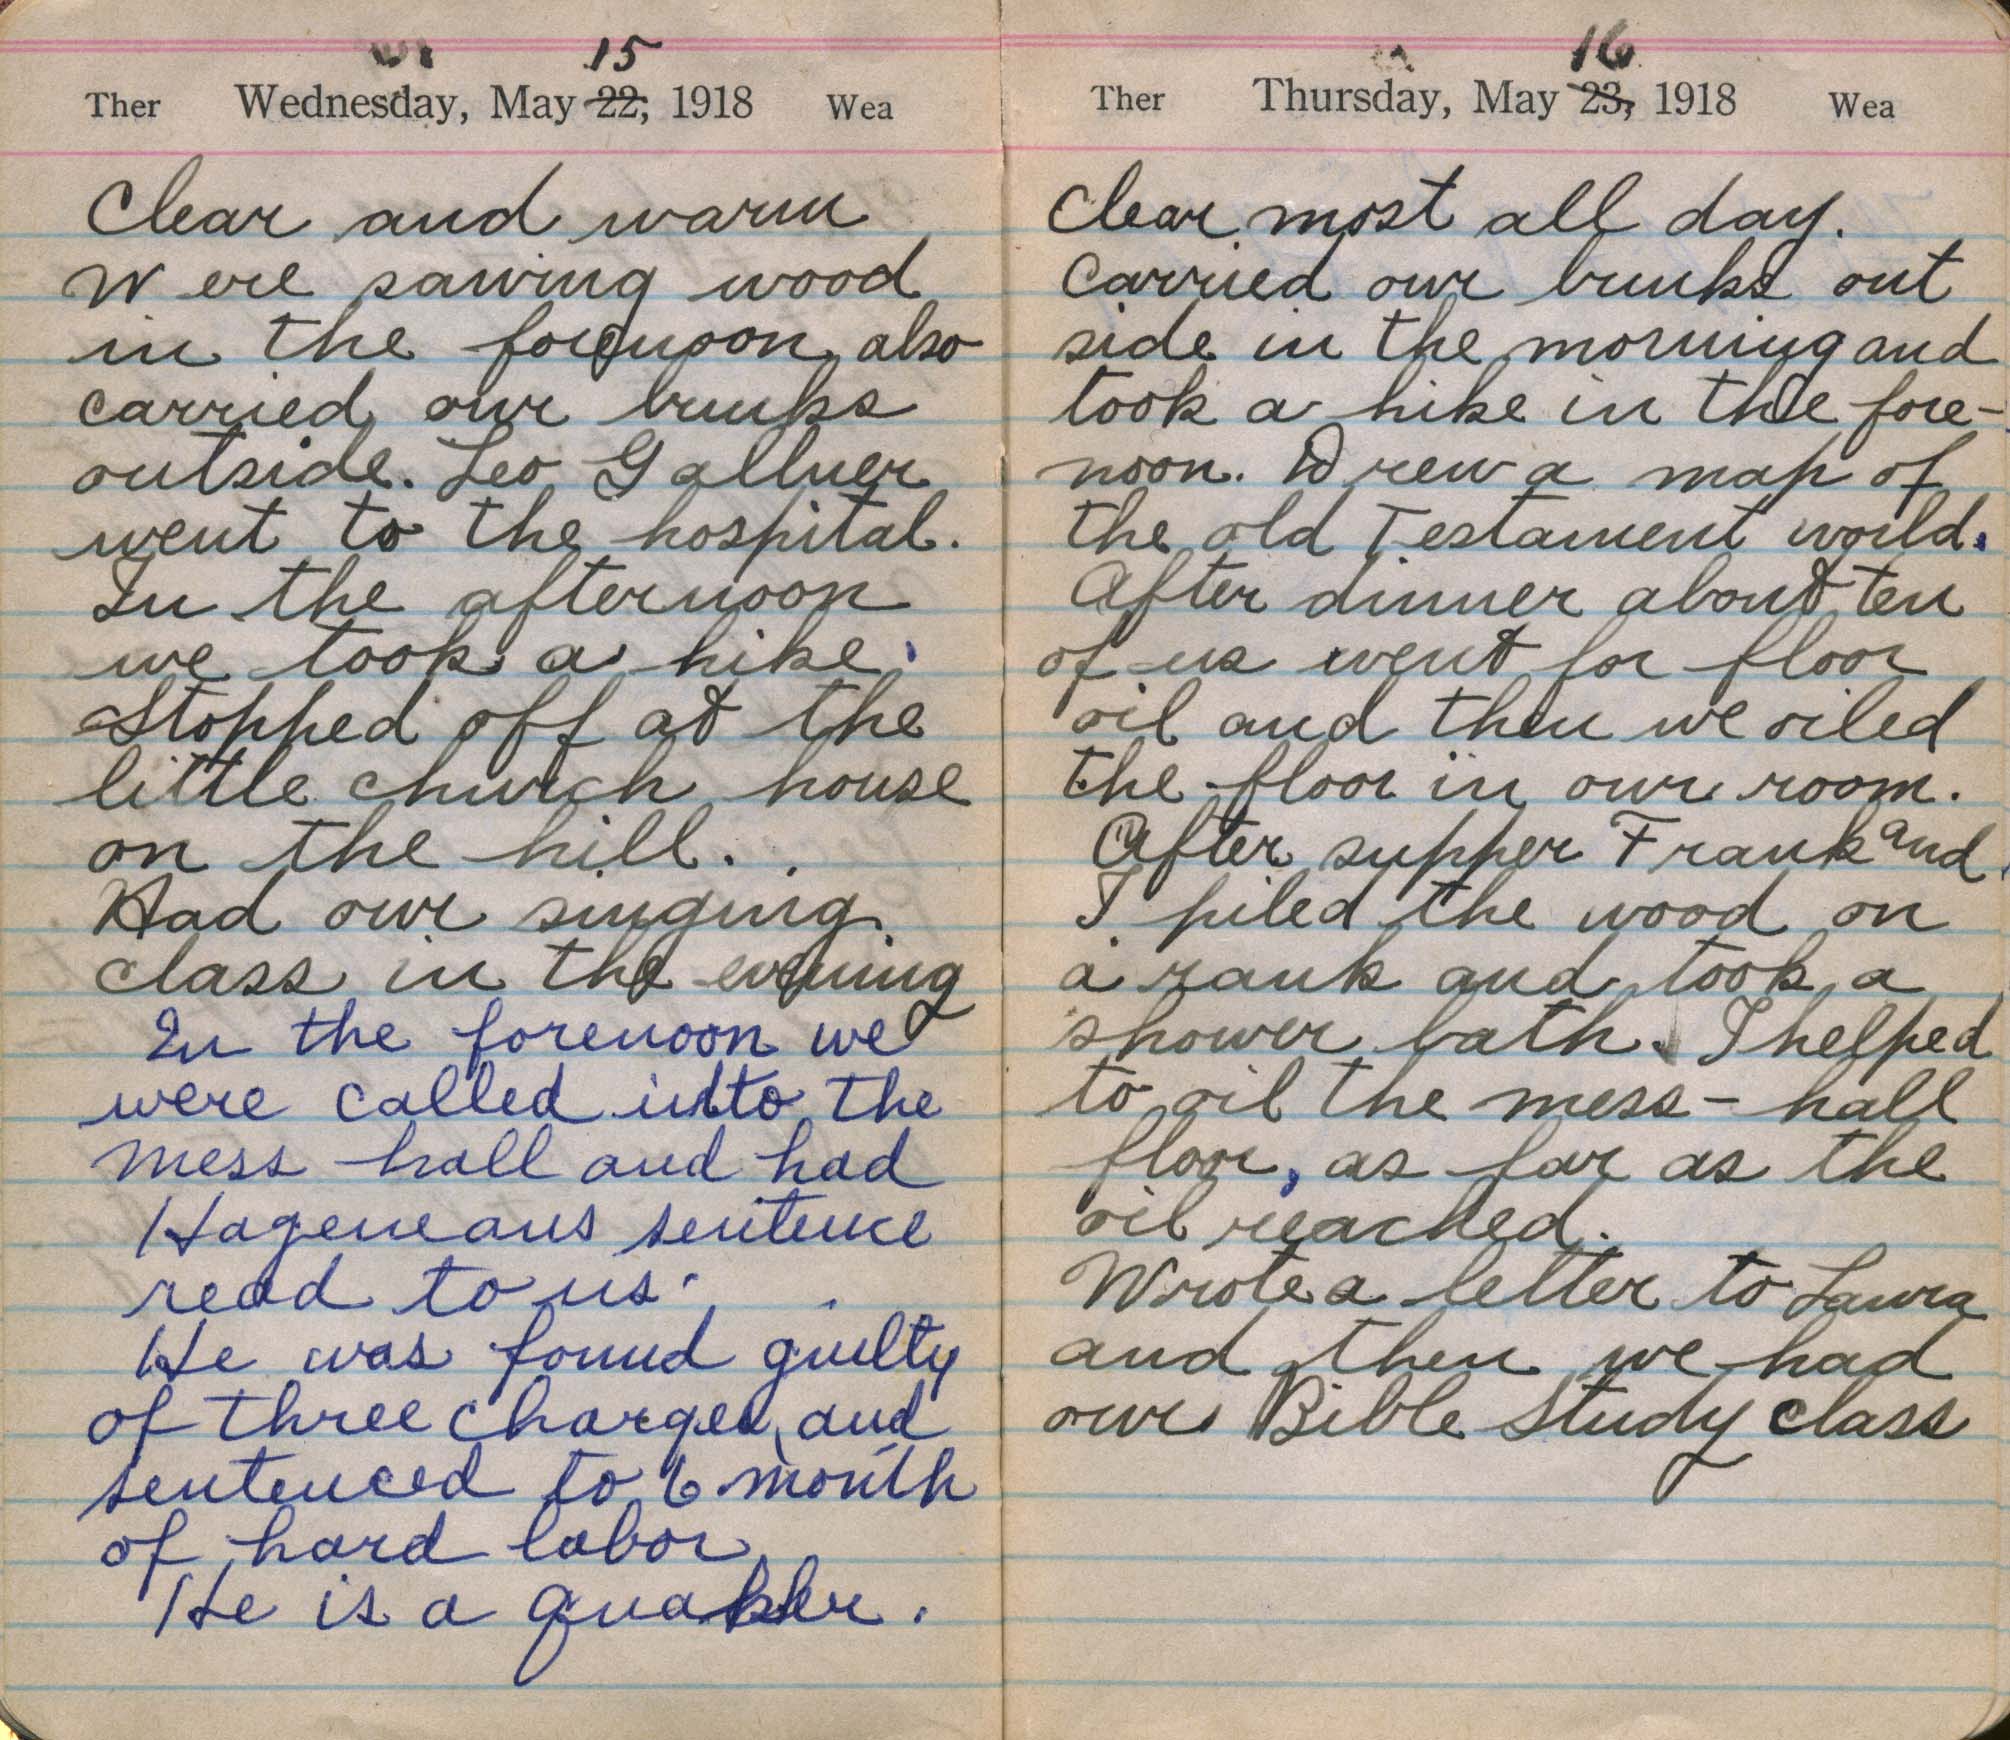 15
Ther Wednesday, May 22, 1918 Wea
Clear and warm
Were sawing wood
in the forenoon, also
carried our bunks
outside. Leo Gallner
went to the hospital.
In the afternoon
we took a hike.
Stopped off at the
little church house
on the hill.
Had our singing
class in the evening
In the forenoon we
were called into the
mess hall and had
Hageneans sentence
read to us.
He was found guilty
of three charges, and
sentenced to 6 month
of hard labor
He is a quaker.
16
Ther Thursday, May 23, 1918 Wea
Clear most all day.
Carried our bunks out
side in the morning and
took a hike in the fore-
noon. Drew a map of
the old Testament world.
After dinner about ten
of us went for floor
oil and then we oiled
the floor in our room.
After supper Frank and
I piled the wood on
a rank and took a
shower bath. I helped
to oil the mess-hall
floor, as far as the
oil reached.
Wrote a letter to Laura
and then we had
our Bible Study class